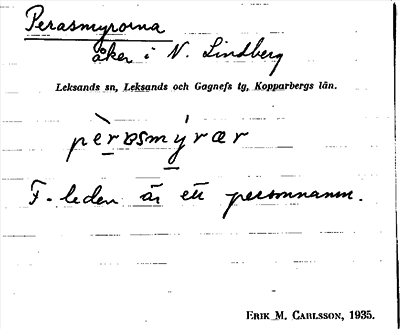 Perasmyrorna
åker i N. Lindberg
Leksands sn, Leksands och Gagnefs tg, Kopparbergs län.
pèrɐsmýrær
F-leden är ett personnamn.
ERIK M. CARLSSON, 1935.